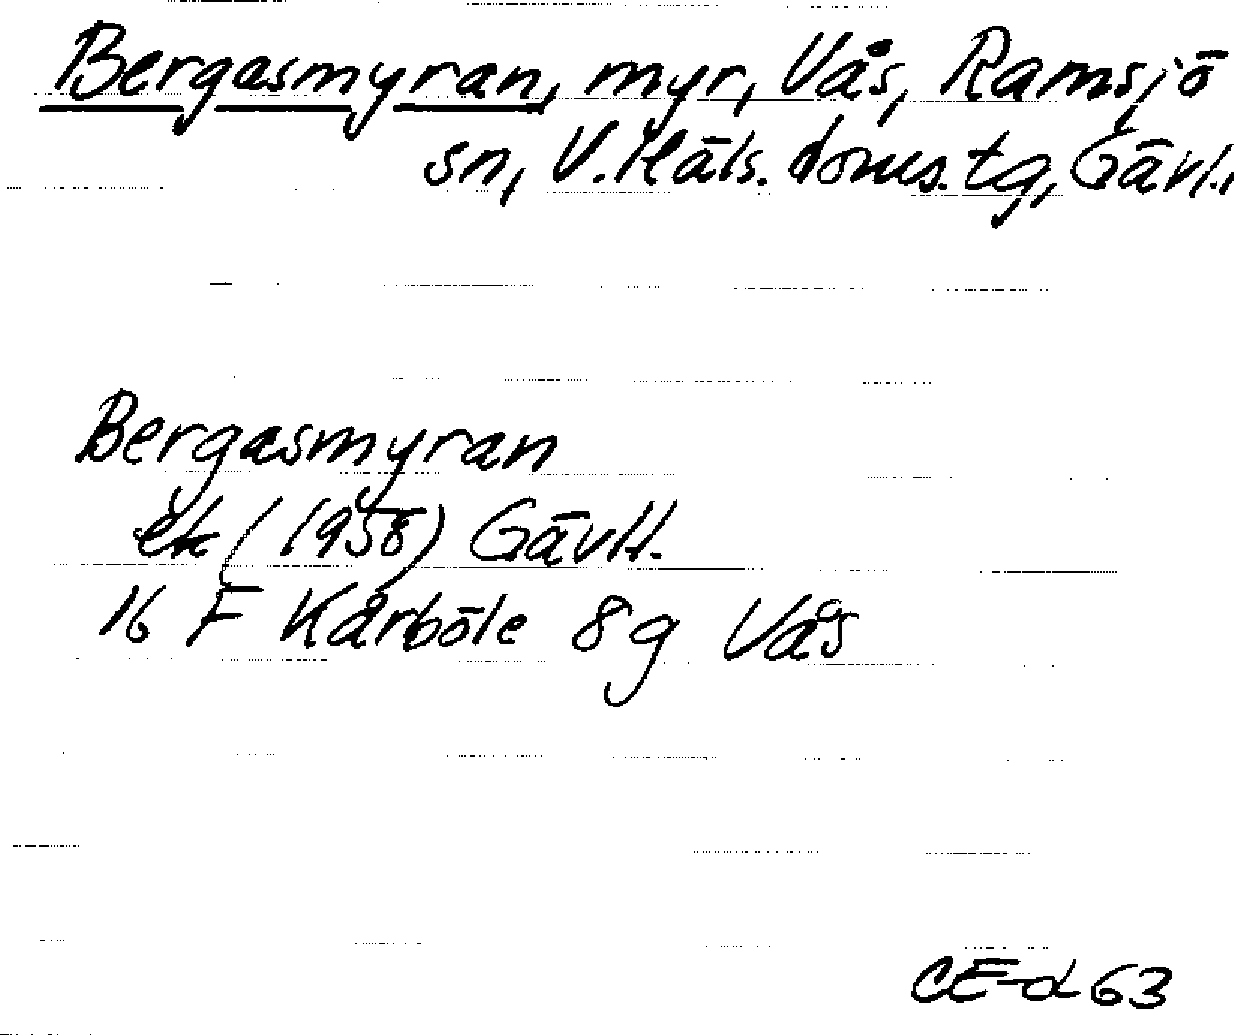 Bergasmyran, myr, Vås, Ramsjö
sn, V. Häls. doms. tg, Gävl.
Bergasmyran
ek (1958) Gävll.
16 F Kårböle 8g Vås
CE-d 63